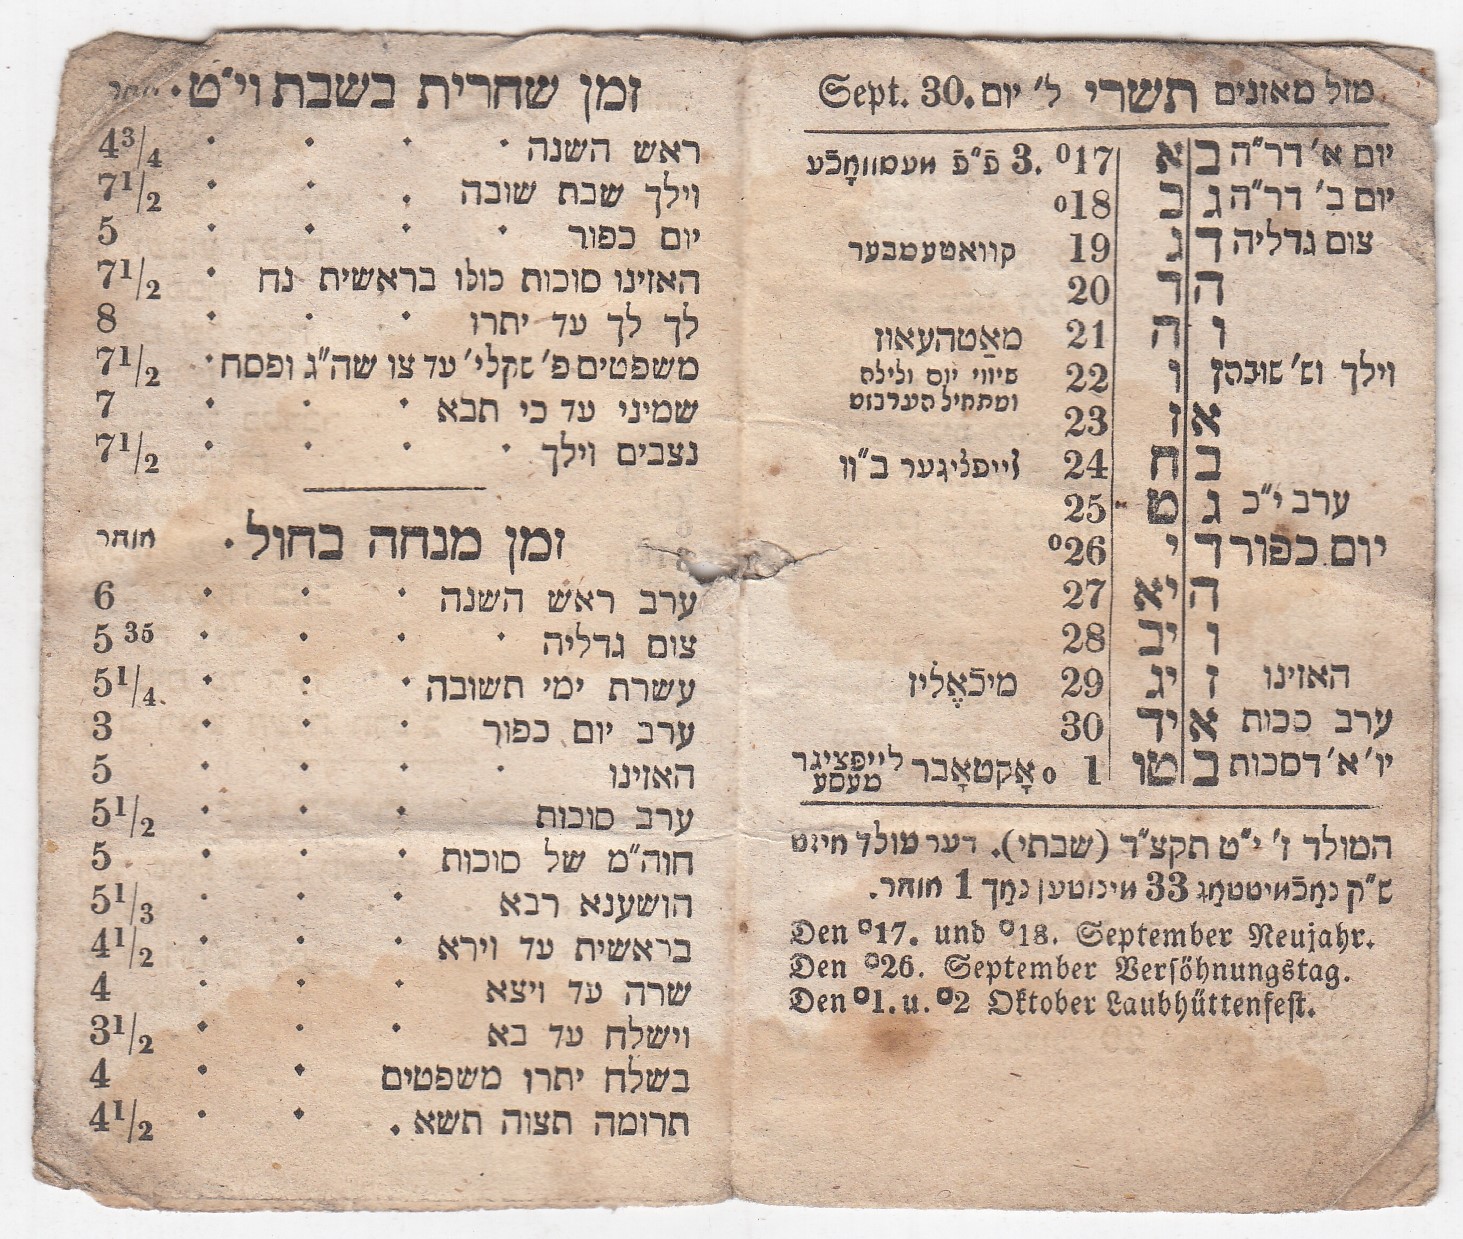 מזל מאזנים תשרי ל׳ יום .Sept. 30
יום א׳ דר״ה ב א 17° .3 פֿ״פֿ מעססוואָכֿע
יום ב׳ דר״ה ג ב 18°
צום גדליה ד ג 19 קוואטעמבער
ה ד 20
ו ה 21 מאַטהעאוז
וילך וש׳ שובה ז ו 22 שיווי יום ולילה
ומתחיל הערבוסט
א ז 23
ב ח 24 לייפליגער ב״וו
ערב י״כ ג ט 25
יום כפור ד י 26°
ה יא 27
ו יב 28
האזינו ז יג 29 מיכֿאֶליז
ערב סכות א יד 30
יו׳ א׳ דסכות ב טו 1 ° אָקטאָבר לייפציגר
מעסע
המולד ז׳ י״ט תקצ״ד (שבתי). דער מולד היינט
ש״ק נאַכֿמיטטאַג 33 מינוטען נאַך 1 אוהר.
Den °17. und °18. September Neujahr.
Den °26. September Versöhnungstag.
Den °1. u. °2 Oktober Laubhüttenfest.
זמן שחרית בשבת וי״ט. אוהר
ראש השנה 4 3/4
וילך שבת שובה 7 1/2
יום כפור 5
האזינו סוכות כולו בראשית נח 7 1/2
לך לך עד יתרו 8
משפטים פ׳ שקלי׳ עד צו שה״ג ופסח 7 1/2
שמיני עד כי תבא 7
נצבים וילך 7 1/2
זמן מנחה בחול. אוהר
ערב ראש השנה 6
צום גדליה 5 35
עשרת ימי תשובה 5 1/4
ערב יום כפור 3
האזינו 5
ערב סוכות 5 1/2
חוה״מ של סוכות 5
הושענא רבא 5 1/3
בראשית עד וירא 4 1/2
שרה עד ויצא 4
וישלח עד בא 3 1/2
בשלח יתרו משפטים 4
תרומה תצוה תשא. 4 1/2